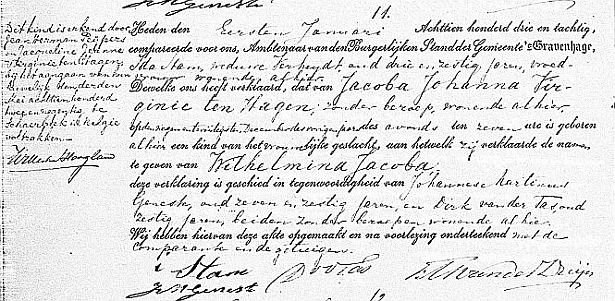 11.
Dit kind is erkend door
Jean Herman Kuspers
en Jacqueline Jeanne
Virginie ten Hagen,
bij het aangaan van hun
huwelijk den derden
Mei achttienhonderd
twee en negentig te
Schaerbeek in België
voltrokken.
Heden den Eersten Januari Achttien honderd drie en tachtig,
compareerde voor ons, Ambtenaar van den Burgerlijken Stand der Gemeente 's Gravenhage,
Ida Stam, weduwe Verheydt, oud drie en zestig jaren, vroed-
vrouw, wonende alhier
Dewelke ons heeft verklaard, dat van Jacoba Johanna Vir-
ginie ten Hagen, zonder beroep, wonende alhier,
op den een en twintigsten December des vorigen jaars des avonds ten zeven ure is geboren
alhier een kind van het vrouwelijke geslacht, aan hetwelk zij verklaarde de namen
te geven van Wilhelmina Jacoba,
deze verklaring is geschied in tegenwoordigheid van Johannes Martinus
Genesk, oud zeven en zestig jaren en Dirk van der Tas, oud
zestig jaren, beiden zonder beroep en wonende alhier.
Wij hebben hiervan deze akte opgemaakt en na voorlezing onderteekend met de
comparante en de getuigen.
I Stam
D v d Tas
12